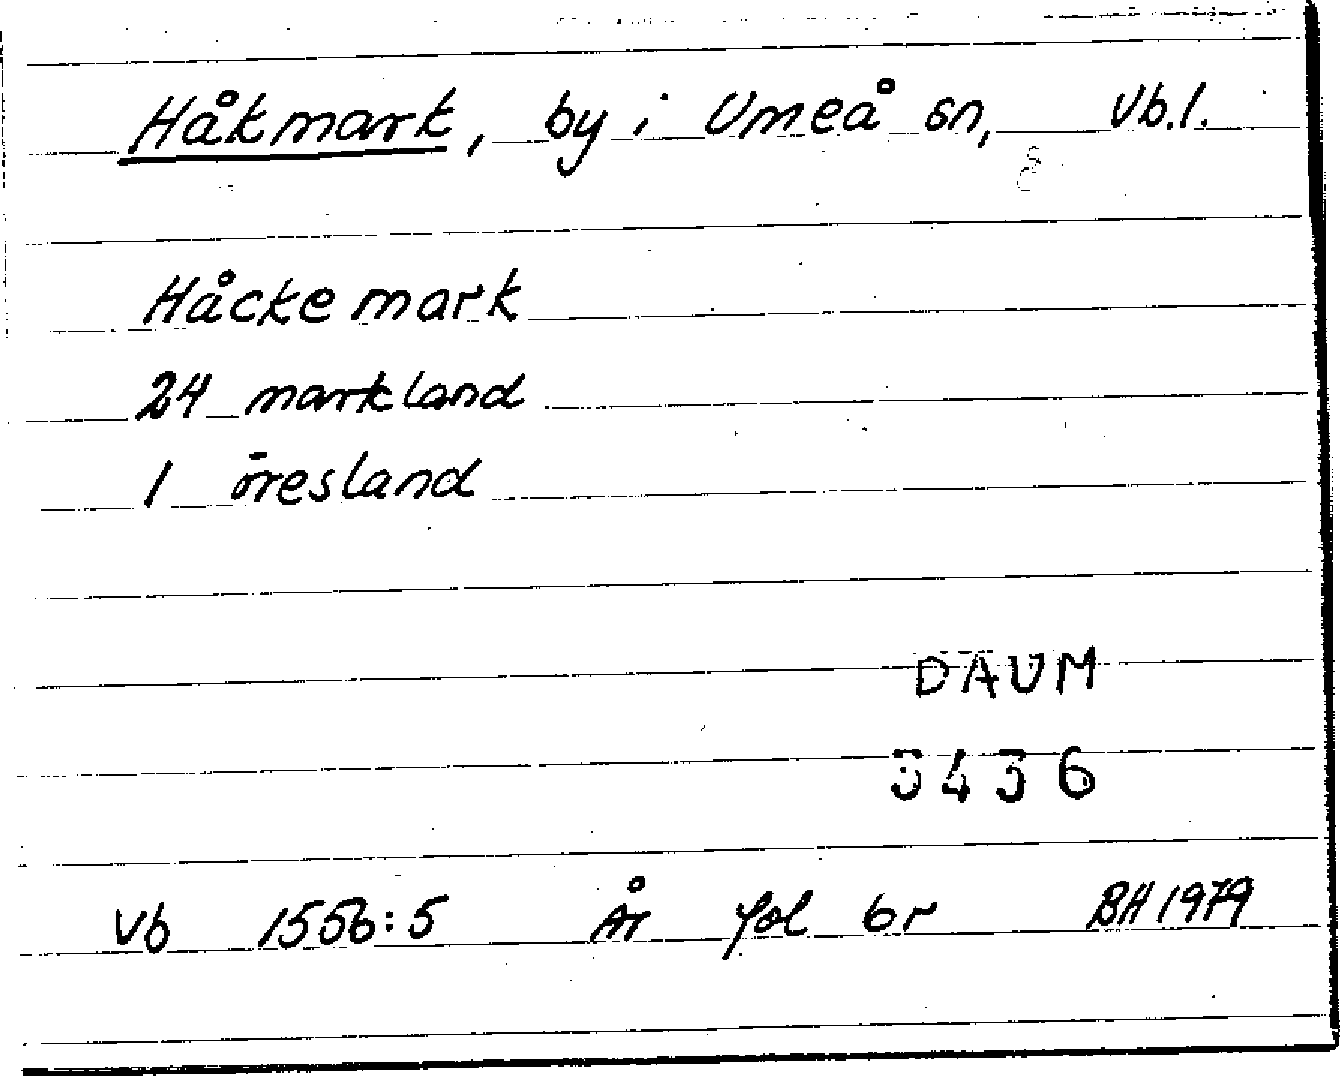 Håkmark, by i Umeå sn, Vb.l.
Håckemark
24 markland
1 öresland
DAUM
3436
Vb 1556:5 År fol 6r BH 1979